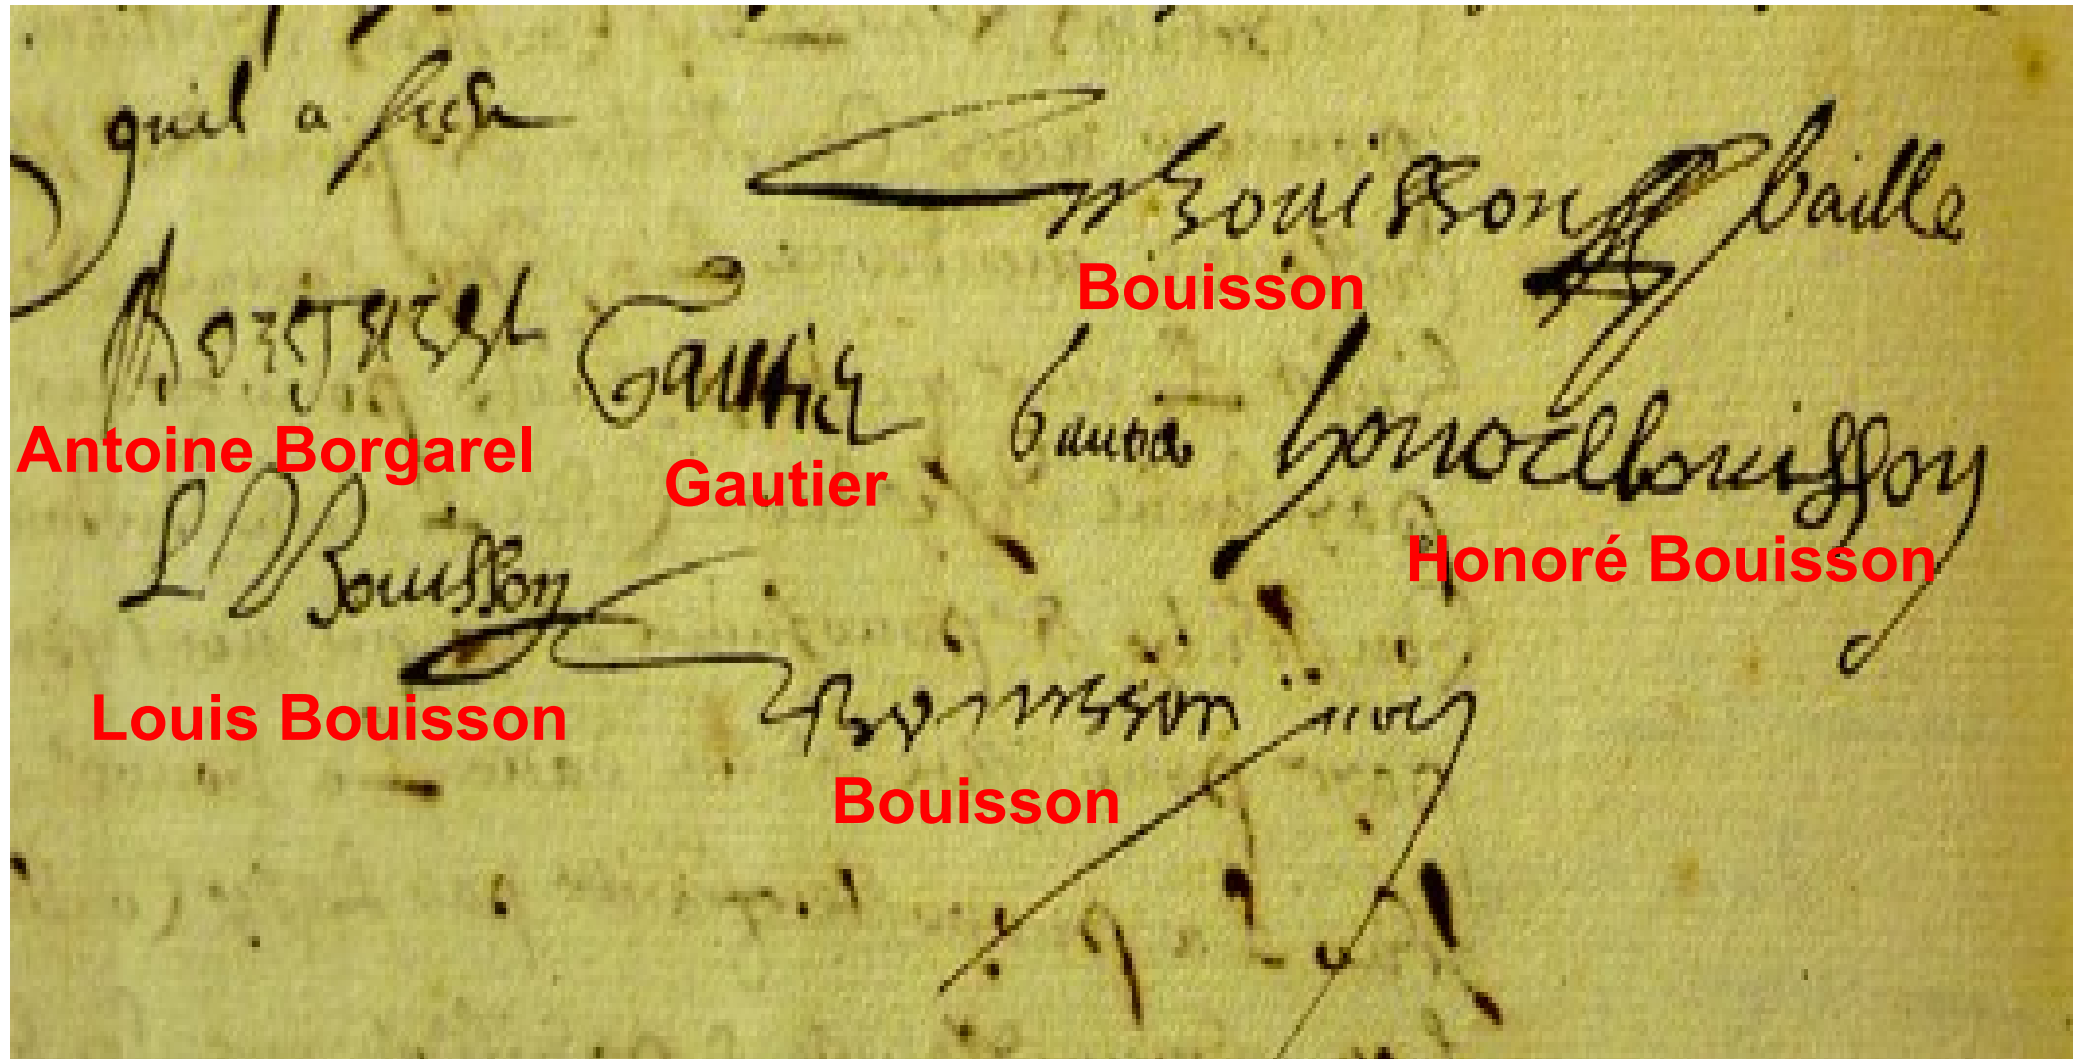 quil a
Bouisson baille
Bouisson
Borgarel Gautier gautier honore bouisson
Antoine Borgarel Gautier Honoré Bouisson
L Bouisson
Louis Bouisson Bouisson
Bouisson